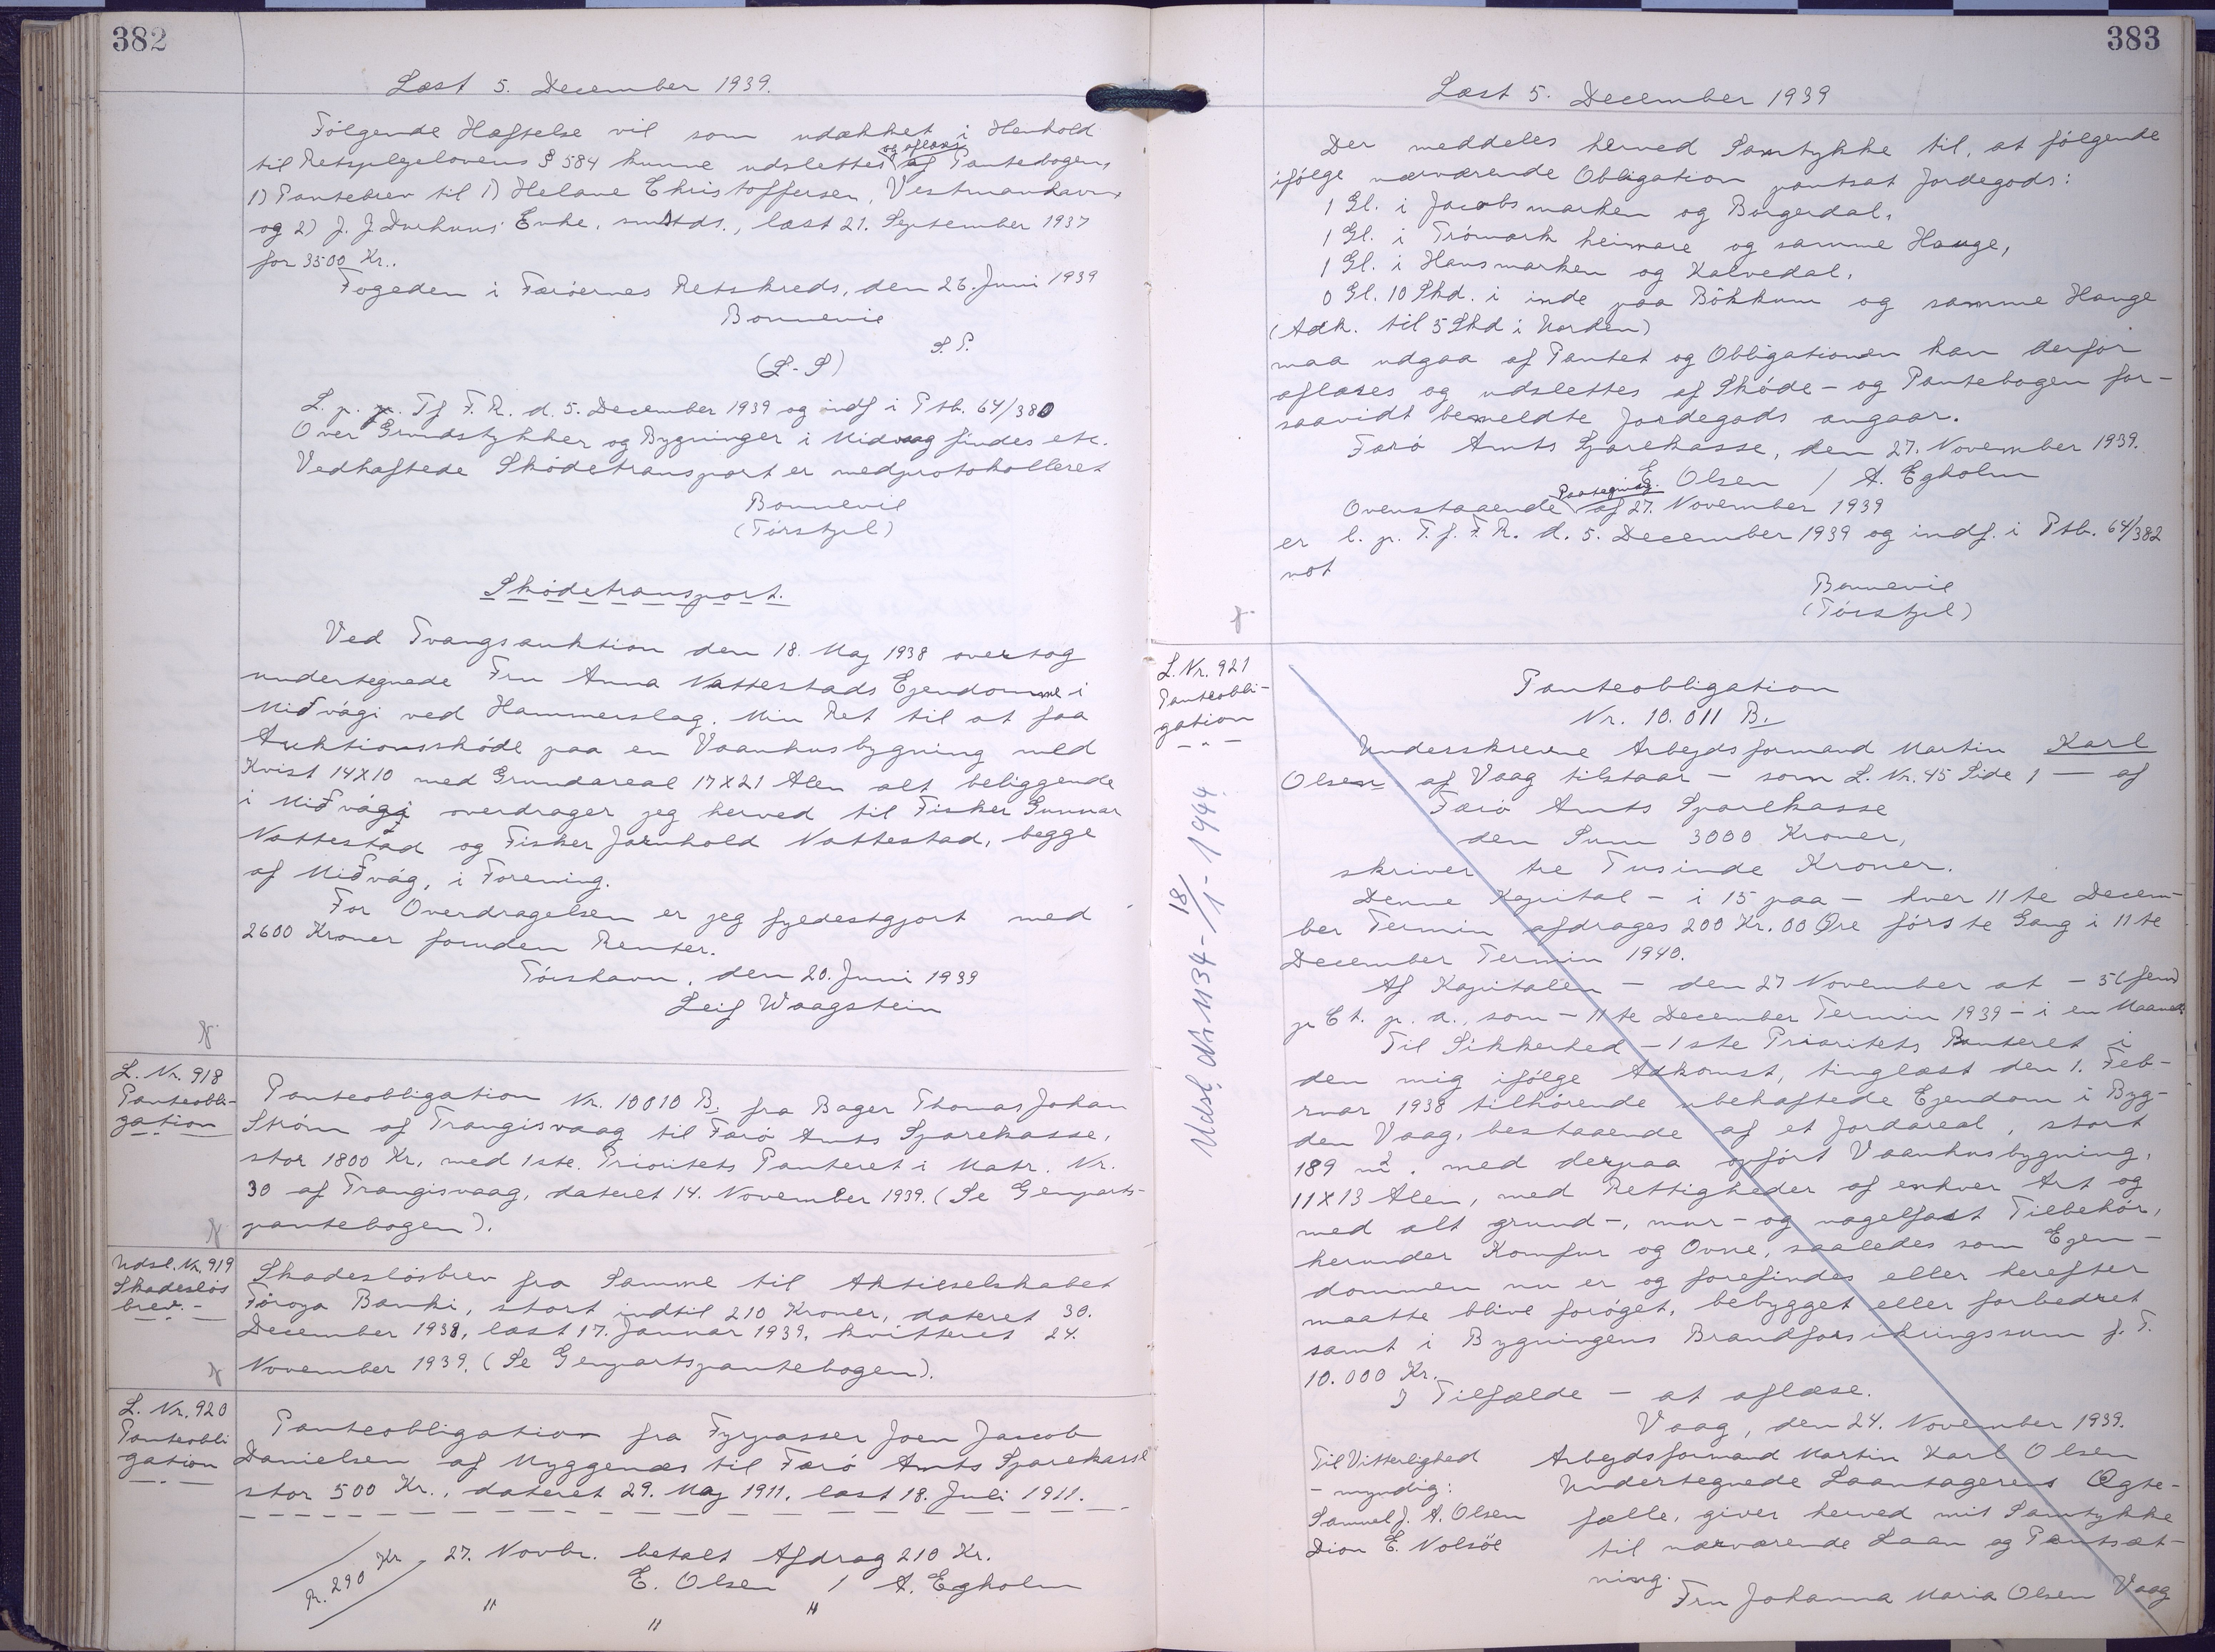 382
Læst 5. December 1939.
Følgende Hæftelse vil som udækket i Henhold
til Retsplejelovens § 584 kunne udslettes og aflæses af Pantebogen,
1) Pantebrev til 1) Helene Christoffersen, Vestmanhavn,
og 2) J. J Durhuus' Enke, smstds., læst 21. September 1937
for 3500 Kr..
Fogeden i Færöernes Retskreds, den 26. Juni 1939
Bonnevie
S. P.
(L-S)
L. p. p. Tf F. R. d. 5. December 1939 og indf i Ptb. 64/380
Over Grundstykker og Bygninger i Midvaag findes etc.
Vedhæftede Sködetransport er medprotokolleret
Bonnevie
(Törstjel)
Sködetransport.
Ved Tvangsauktion den 18. Maj 1938 overtog
undertegnede Fru Anna Nattestads Ejendomme i
Miðvági ved Hammerslag. Min Ret til at faa
Auktionsskóde paa en Vaanhusbygning med
Kvist 14X10 med Grundareal 17X21 Alen alt beliggende
i Miðvági overdrager jeg herved til Fisker Gunnar
Nattestad og Fisker Jarnhold Nattestad, begge
af Miðvág, i Forening.
For Overdragelsen er jeg fyldestgjort med
2600 Kroner foruden Renter.
Tórshavn, den 20. Juni 1939
Leif Waagstein
L. Nr. 918
Panteobli-
gation
Panteobligation Nr. 10010 B. fra Bager Thomas Johan
Ström af Trangisvaag til Færö Amts Sparekasse,
stor 1800 Kr. med 1ste. Prioritets Panteret i Matr. Nr.
30 af Trangisvaag, dateret 14. November 1939. (Se Genparts-
pantebogen).
Udsl. Nr. 919
Skadeslös
brev. -
Skadeslösbrev fra Samme til Aktieselskabet
Föroya Banki, stort indtil 210 Kroner, dateret 30.
December 1938, læst 17. Januar 1939, kvitteret 24.
November 1939. (Se Genpartspantebogen).
L. Nr. 920
Panteobli
gation
Panteobligation fra Fyrpasser Joen Jacob
Danielsen af Myggenæs til Færö Amts Sparekasse
stor 500 Kr., dateret 29. Maj 1911, læst 18. Juli 1911.
R. 290 Kr 27. Novbr. betalt Afdrag 210 Kr.
E. Olsen / A. Egholm
" " "
383
Læst 5. December 1939
Der meddeles herved Samtykke til, at følgende
ifölge nærværende Obligation pantsat Jordegods:
1 Gl. i Jacobsmarken og Borgerdal,
1 Gl. i Trómark heimare og samme Hauge,
1 Gl. i Hansmarken og Kalvedal,
0 Gl. 10 Skd. i inde paa Bökkum og samme Hauge
(Adk. til 5 Skd i Norden)
maa udgaa af Pantet og Obligationen kan derfor
aflæses og udslettes af Sköde- og Pantebogen for-
saavidt bemeldte Jordegods angaar.
Færö Amts Sparekasse, den 27. November 1939.
E. Olsen / A. Egholm
Ovenstaaende Paategning af 27. November 1939
er l. p. T. f. F. R. d. 5. December 1939 og indf. i Ptb. 64/382
not
Bonnevie
(Törstjel)
L. Nr. 921
Panteobli-
gation
Udsl. Nr. 1134 - 18/1 - 1944
Panteobligation
Nr. 10.011 B.
Underskrevne Arbejdsformand Martin Karl
Olsen af Vaag tilstaar - som L. Nr. 45 Side 1 - af
Færö Amts Sparekasse
den Sum 3000 Kroner,
skriver tre Tusinde Kroner.
Denne Kapital - i 15 paa - hver 11te Decem-
ber Termin afdrages 200 Kr. 00 Øre förste Gang i 11te
December Termin 1940.
Af Kapitalen - den 27 November at - 5 (fem)
p Ct. p. a., som - 11te December Termin 1939 - i en Maaned.
Til Sikkerhed - 1ste Prioritets Panteret i
den mig ifölge Adkomst, tinglæst den 1. Feb-
ruar 1938 tilhörende ubehæftede Ejendom i Byg-
den Vaag, bestaaende af et Jordareal, stort
189 m². med derpaa opfört Vaanhusbygning,
11X13 Alen, med Rettigheder af enhver Art og
med alt grund-, mur- og nagelfast Tilbehör,
herunder Komfur og Ovne, saaledes som Ejen-
dommen nu er og forefindes eller herefter
maatte blive foröget, bebygget eller forbedret
samt i Bygningens Brandforsikringssum f. T.
10.000 Kr.
I Tilfælde - at aflæse.
Vaag, den 24. November 1939.
Til Vitterlighed
- myndig:
Samuel J. A. Olsen
Dion E. Nolsöe
Arbejdsformand Martin Karl Olsen
Undertegnede Laantagerens Ægte-
fælle, giver herved mit Samtykke
til nærværende Laan og Pantsæt-
ning.
Fru Johanna Maria Olsen Vaag